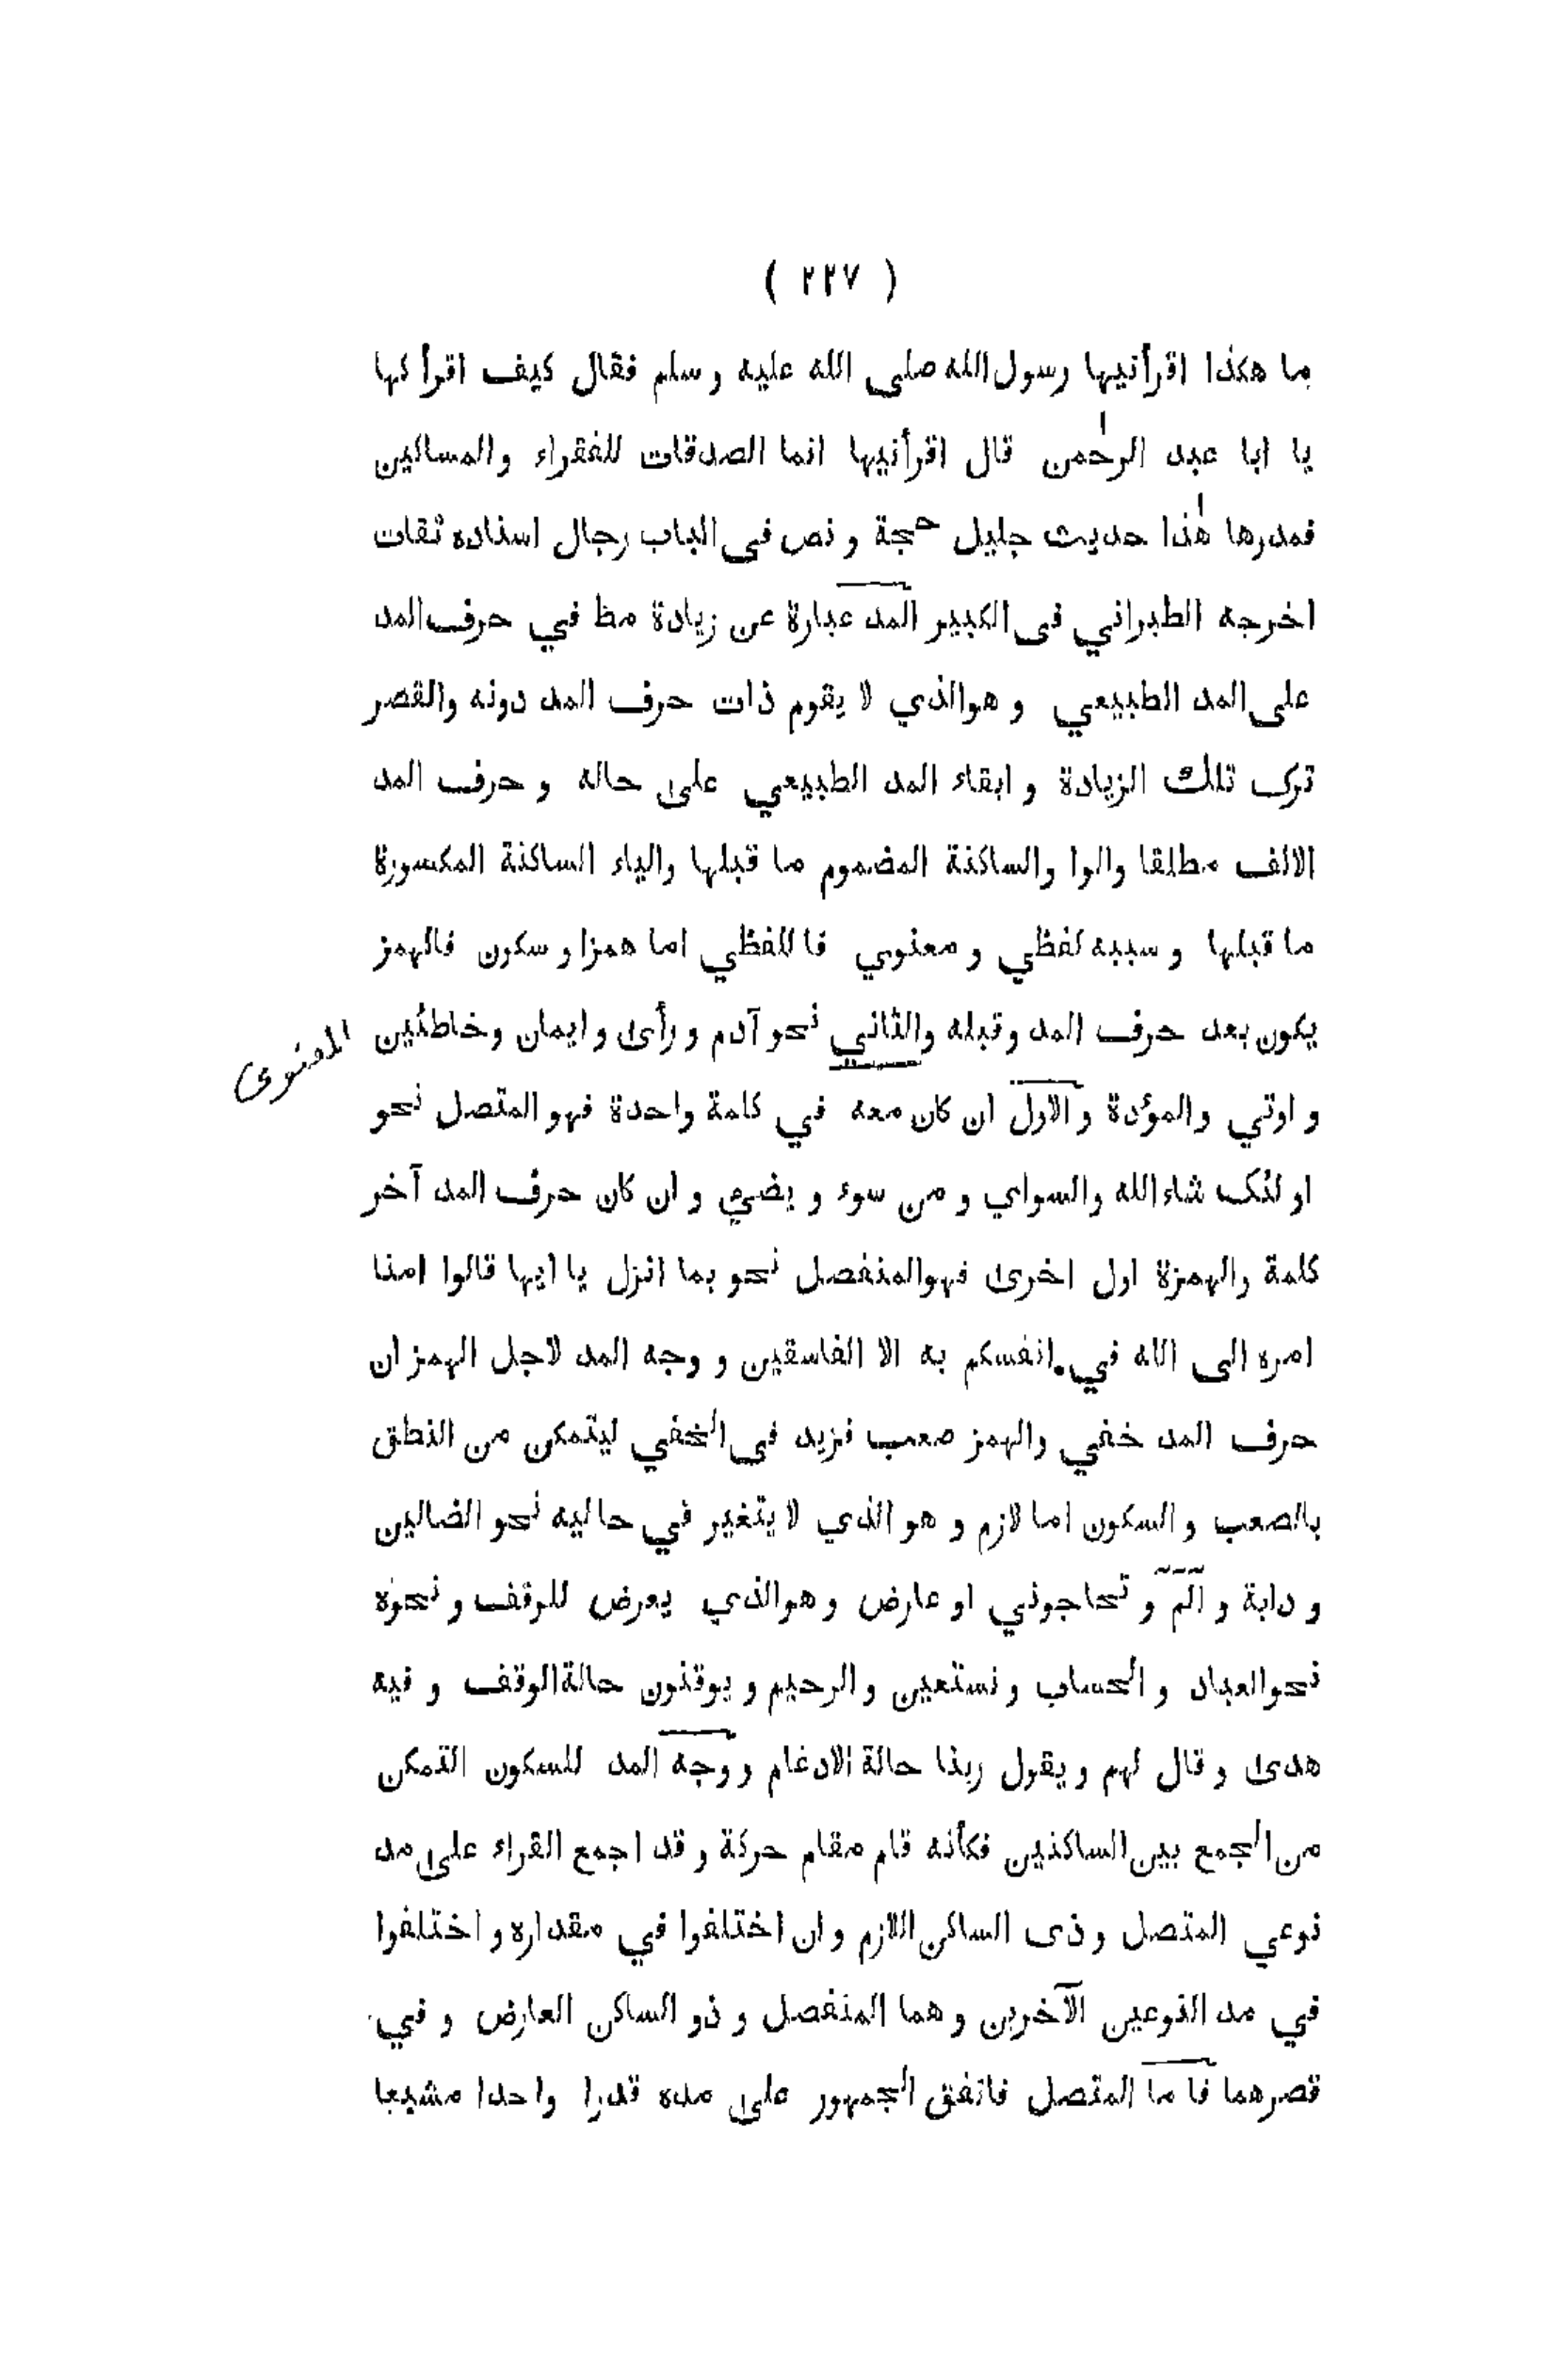 ( ٢٢٧ )
ما هكذا اقرأنيها رسول الله صلى الله عليه وسلم فقال كيف اقرأكها
يا ابا عبد الرحٰمن قال اقرأنيها انما الصدقات للفقراء والمساكين
فمدرها هٰذا حديث جليل حجة و نص فى الباب رجال اسناده ثقات
اخرجه الطبراني فى الكبير المد عبارة عن زيادة مظ في حرف المد
على المد الطبيعي و هو الذي لا يقوم ذات حرف المد دونه والقصر
ترک تلك الزيادة و ابقاء المد الطبيعي على حاله و حرف المد
الالف مطلقا والوا والساكنة المضموم ما قبلها والياء الساكنة المكسورة
ما قبلها و سببه لفظي و معنوي فاللفظي اما همزا و سكون فالهمز
يكون بعد حرف المد وقبله والثانى نحو آدم و رأى و ايمان وخاطئين
المعنوى
و اوتي والموؤدة و الاول ان كان معه في كلمة واحدة فهو المتصل نحو
اولئک شاء الله والسواي و من سوء و يضي و ان كان حرف المد آخر
كلمة والهمزة اول اخرى فهو المنفصل نحو بما انزل يا ايها قالوا امنا
امره الى الله في انفسكم به الا الفاسقين و وجه المد لاجل الهمز ان
حرف المد خفي والهمز صعب فزيد فى الخفي ليتمكن من النطق
بالصعب و السكون اما لازم و هو الذي لا يتغير في حاليه نحو الضالين
و دابة و آلٓمٓ و تحاجوني او عارض و هو الذي يعرض للوقف و نحوه
نحو العباد و الحساب و نستعين و الرحيم و يوقنون حالة الوقف و فيه
هدى و قال لهم و يقول ربنا حالة الادغام و وجه المد للسكون التمكن
من الجمع بين الساكنين فكأنه قام مقام حركة و قد اجمع القراء على مد
نوعي المتصل و ذى الساكن اللازم و ان اختلفوا في مقداره و اختلفوا
في مد النوعين الآخرين و هما المنفصل و ذو الساكن العارض و في
قصرهما فاما المتصل فاتفق الجمهور على مده قدرا واحدا مشبعا